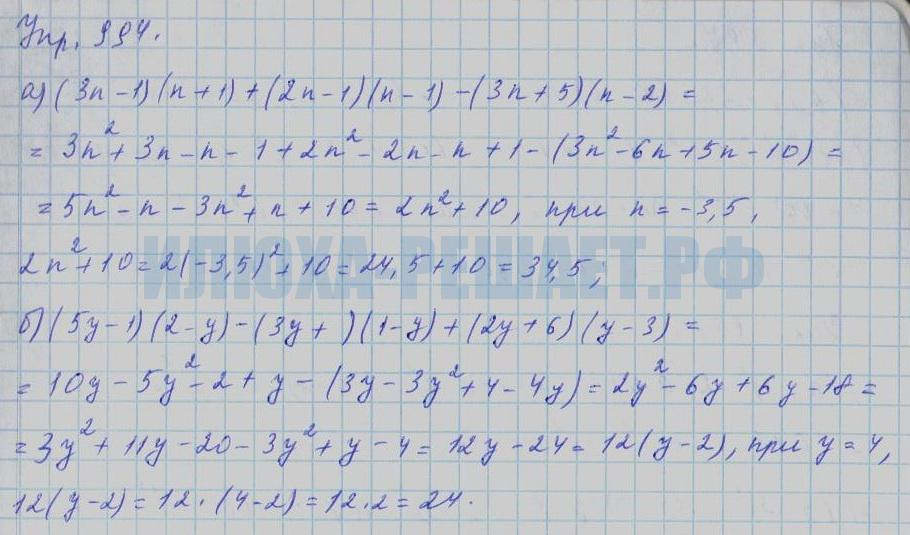 Упр. 994.
а) (3n-1)(n+1)+(2n-1)(n-1)-(3n+5)(n-2) =
= 3n²+3n-n-1+2n²-2n-n+1-(3n²-6n+5n-10) =
= 5n²-n-3n²+n+10 = 2n²+10, при n = -3,5,
ИЛЮХА-РЕШАЕТ.РФ
2n²+10 = 2(-3,5)²+10 = 24,5+10 = 34,5;
б) (5y-1)(2-y)-(3y+ )(1-y)+(2y+6)(y-3) =
= 10y-5y²-2+y-(3y-3y²+4-4y) = 2y²-6y+6y-18 =
= 3y²+11y-20-3y²+y-4 = 12y-24 = 12(y-2), при y = 4,
12(y-2) = 12·(4-2) = 12·2 = 24.